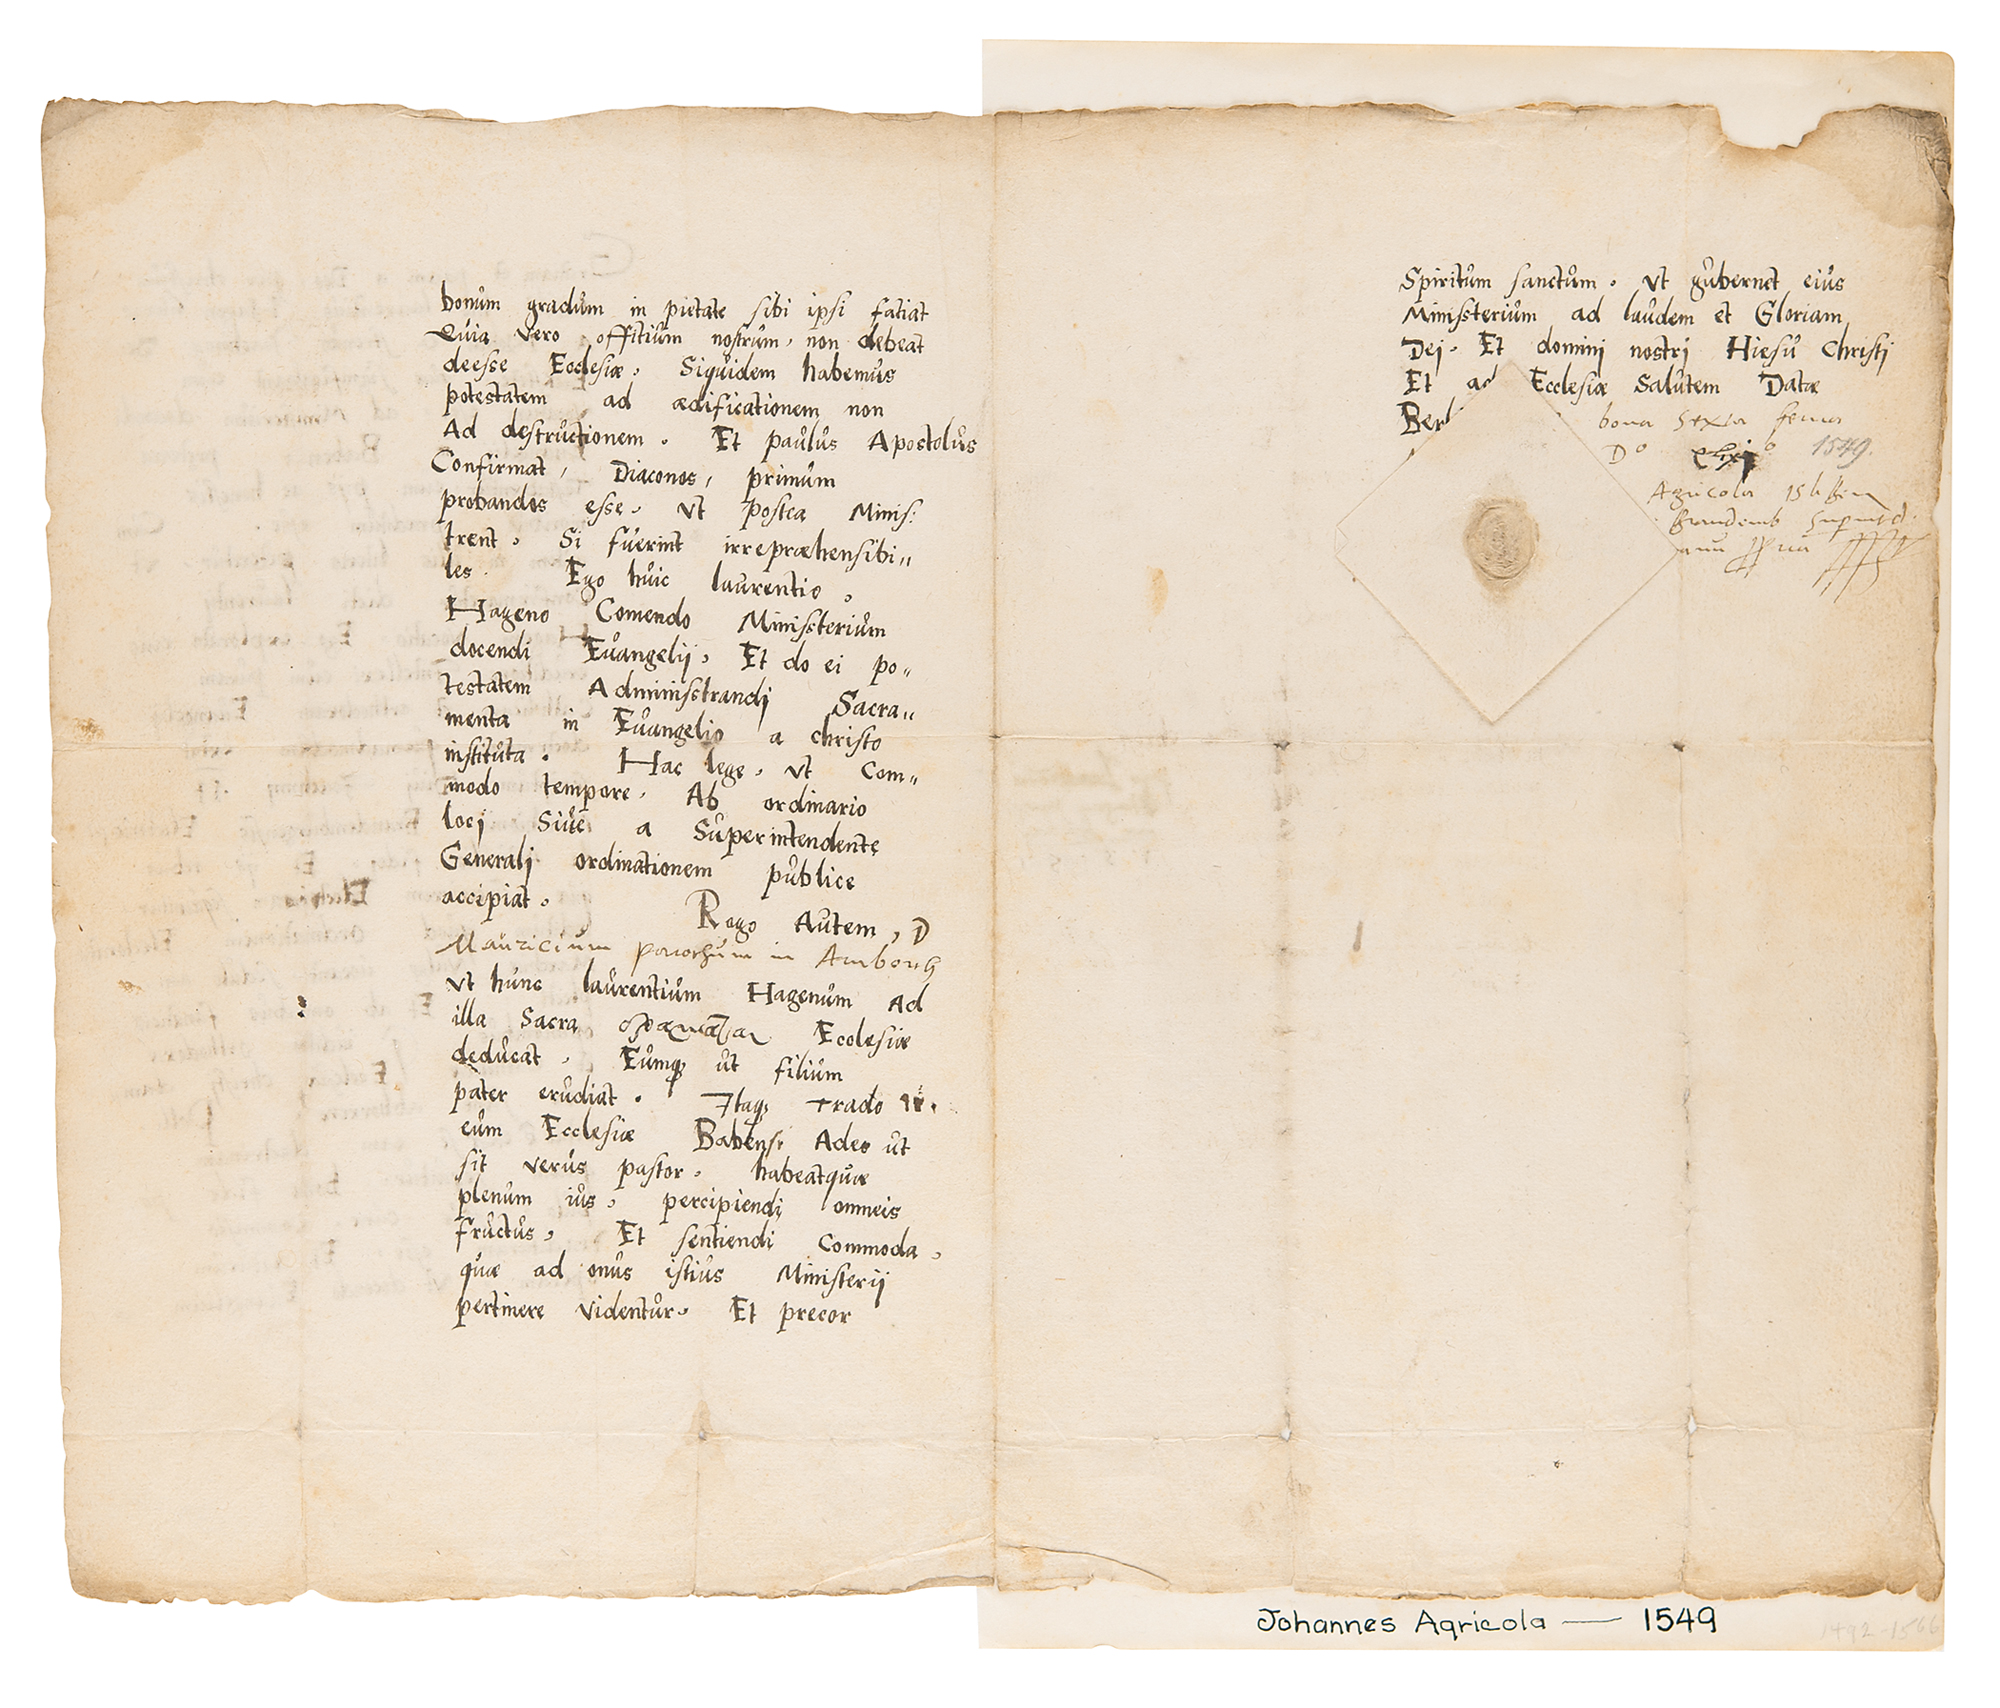 bonum gradum in pietate sibi ipsi fatiat
Quia vero offitium nostrum, non debeat
deesse Ecclesiæ. Siquidem habemus
potestatem ad ædificationem non
Ad destructionem. Et paulus Apostolus
Confirmat, Diaconos, primum
probandos esse. Vt postea Minis:
trent. Si fuerint irrepræhensibi„
les. Ego huic laurentio.
Hageno Comendo Ministerium
docendi Euangelij. Et do ei po„
testatem Administrandj Sacra„
menta in Euangelio a christo
instituta. Hac lege. Vt Com„
modo tempore. Ab ordinario
locj Siue a Superintendente
Generalj ordinationem publice
accipiat. Rogo Autem, D
Mauricium parochum in
Vt hunc laurentium Hagenum Ad
illa Sacra Ecclesiæ
deducat. Eumq; ut filium
pater erudiat. Itaq; Trado
eum Ecclesiæ Babensi Adeo ut
sit verus pastor. habeatquæ
plenum ius. percipiendj omneis
fructus. Et sentiendi Commoda.
quæ ad onus istius Ministerij
pertinere videntur. Et precor
Spiritum sanctum. Vt gubernet eius
Ministerium ad laudem et Gloriam
Dej. Et dominj nostrj Hiesu Christj
Et ad Ecclesiæ Salutem Datæ
Berl
bona sexta feria
Do 1549.
Agricola Islebien

Johannes Agricola — 1549
1492-1566